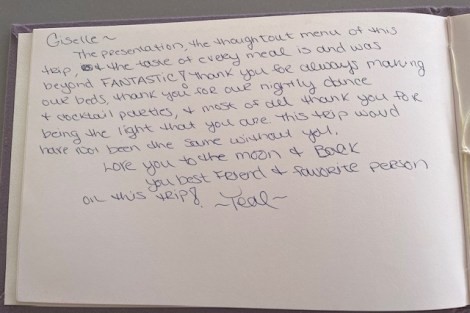 Giselle ~
The presentation, the thought out menu of this
trip, & the taste of every meal is and was
beyond FANTASTIC! thank you for always making
our beds, thank you for our nightly dance
& cocktail parties, & most of all thank you for
being the light that you are this trip would
have not been the same without you.
Love you to the moon & Back
you best Friend & favorite person
on this trip!
~Teal~